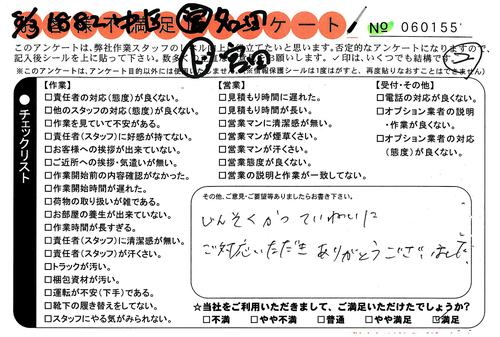 お客様不満足アンケート!
№ 060155
このアンケートは、弊社作業スタッフのレベル向上に役立てたいと思います。否定的なアンケートになりますので、
記入後シールを上に貼って下さい。
✓印は、いくつでも結構です。
チェックリスト
【作業】
□責任者の対応(態度)が良くない。
□他のスタッフの対応(態度)が良くない。
□作業を見ていて不安がある。
□責任者(スタッフ)に好感が持てない。
□お客様への挨拶が出来ていない。
□ご近所への挨拶・気遣いが無い。
□作業開始前の内容確認がなかった。
□作業開始時間が遅れた。
□荷物の取り扱いが雑である。
□お部屋の養生が出来ていない。
□作業時間が長すぎる。
□責任者(スタッフ)に清潔感が無い。
□責任者(スタッフ)が汗くさい。
□トラックが汚い。
□梱包資材が汚い。
□運転が不安(下手)である。
□靴下の履き替えをしてない。
□スタッフにやる気がみられない。
【営業】
□見積もり時間に遅れた。
□見積もり時間が長い。
□営業マンに清潔感が無い。
□営業マンが煙草くさい。
□営業マンが汗くさい。
□営業態度が良くない。
□営業の説明と作業が一致してない。
【受付・その他】
□電話の対応が良くない。
□オプション業者の説明
・作業が良くない。
□オプション業者の対応
(態度)が良くない。
その他、ご意見・ご要望等ありましたらお書き下さい。
じんそくかつていねいに
ご対応いただきありがとうございました
☆当社をご利用いただきまして、ご満足いただけたでしょうか?
□不満 □やや不満 □普通 □やや満足 ☑満足